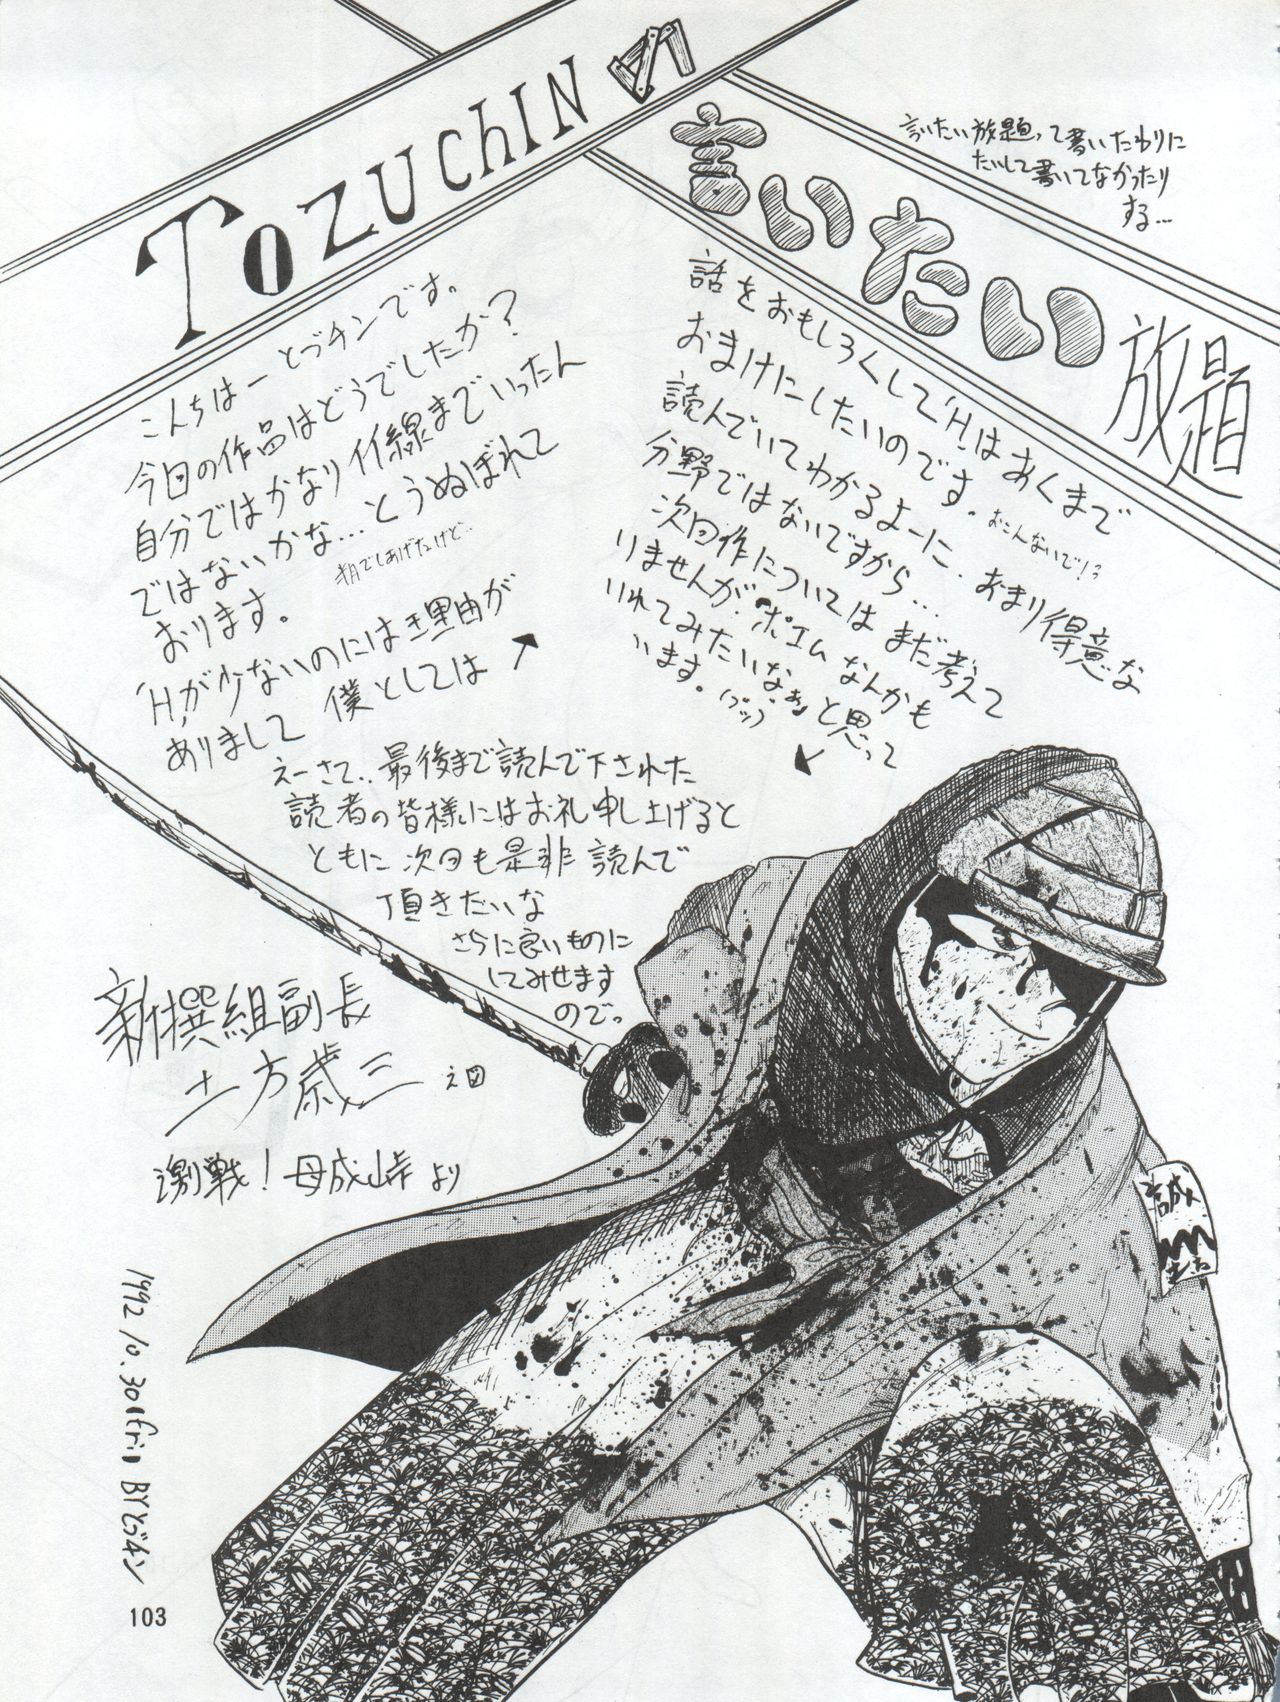 TOZUCHINの
言いたい放題
言いたい放題って書いたわりに
たいして書いてなかったり
する…
こんちはーとづチンです。
今日の作品はどうでしたか?
自分ではかなりイイ線までいったん
ではないかな…とうぬぼれて
おります。
'H'が少ないのには理由が
ありまして 僕としては
話をおもしろくして'Hはあくまで
おまけにしたいのです。
おこんないで!?
読んでいてわかるよーに、あまり得意な
分野ではないですから…
次回作については まだ考えて
りませんが、"ポエム なんかも
いれてみたいなぁ」と思って
います。
えーさて..最後まで読んで下された
読者の皆様にはお礼申し上げると
ともに次回も是非 読んで
頂きたいな
さらに良いものに
してみせます
のでっ
新撰組副長
土方歳三 え図
激戦!母成峠より
誠
1992 10.30(fri) BYとづチン
103